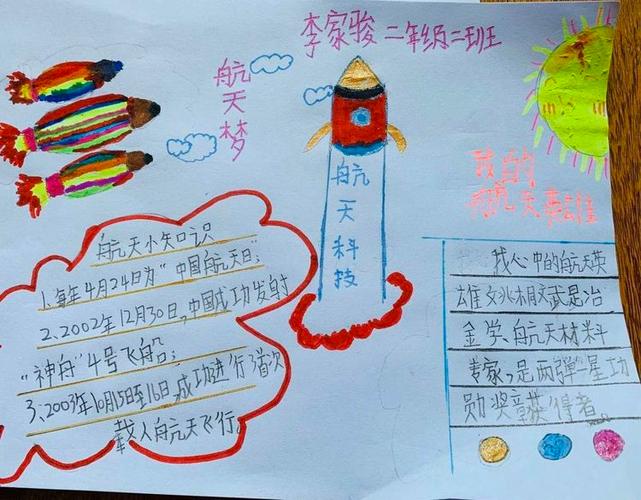 李家骏 二年级二班
航天梦
航天科技
我的
航天英雄
航天小知识
1、每年4月24日为"中国航天日";
2、2002年12月30日,中国成功发射
"神舟"4号飞船;
3、2003年10月15日至16日,成功进行首次
载人航天飞行。
我心中的航天英
雄姚桐斌是冶
金学、航天材料
专家,是两弹一星功
勋奖章获得者